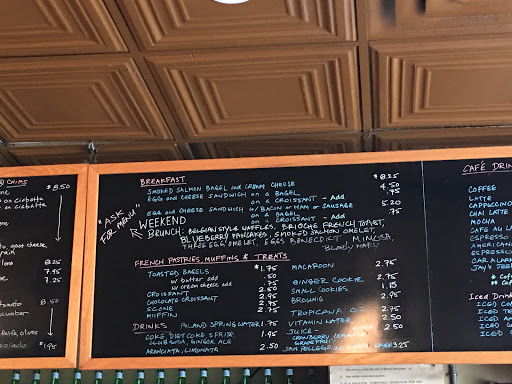 & CHIPS
$8.50
on ciabatta
on ciabatta
goat cheese,
8.25
7.95
7.25
8.50
cumber
olives
$1.95
"ASK FOR MENU"
BREAKFAST
SMOKED SALMON BAGEL AND CREAM CHEESE $8.25
EGG AND CHEESE SANDWICH ON A BAGEL 4.50
ON A CROISSANT - Add .75
EGG AND CHEESE SANDWICH W/ BACON OR HAM OR SAUSAGE
ON A BAGEL 5.20
ON A CROISSANT - Add .75
WEEKEND
BRUNCH: BELGIUM STYLE WAFFLES, BRIOCHE FRENCH TOAST,
BLUEBERRY PANCAKES, SMOKED SALMON OMELET,
THREE EGG OMELET, EGGS BENEDICT MIMOSA,
BLOODY MARY
FRENCH PASTRIES, MUFFINS, & TREATS
TOASTED BAGELS $1.75
w/ butter add .50
w/ cream cheese add .75
CROISSANT 2.50
CHOCOLATE CROISSANT 2.95
SCONE 2.75
MUFFIN 2.50
MACAROON 2.75
GINGER COOKIE 2.75
SMALL COOKIES 1.15
BROWNIE 2.95
TROPICANA OJ 2.75
VITAMIN WATER 2.50
JUICE - 2.50
CRANBERRY, LEMONADE
GRAPEFRUIT
SAN PELLEGRINO WATER LARGE 3.25
DRINKS
POLAND SPRING WATER 1.75
COKE, DIET COKE, SPRITE, 1.95
CLUB SODA, GINGER ALE
ARANCIATA, LIMONATA 2.50
CAFÉ DRIN
COFFEE
LATTE
CAPPUCCINO
CHAI LATTE
MOCHA
CAFE AU LA
ESPRESSO
AMERICAN
ESPRESSO
CARAMEL
JAY'S
Iced Drin
ICED
ICED TE
ICED
ICED
ICED